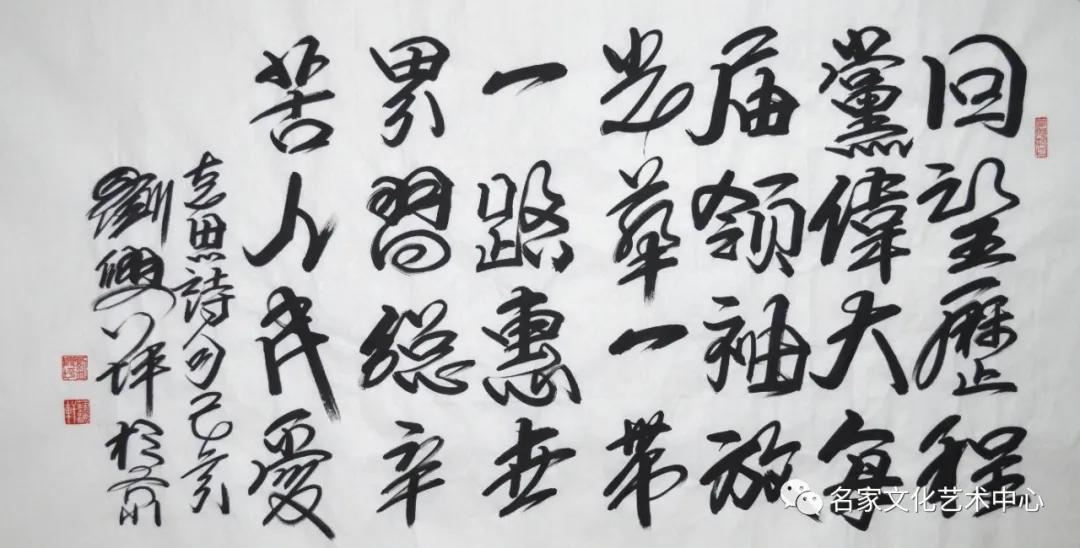 回望歷程
黨偉大每
届領袖放
光華一帶
一路惠世
界習總辛
苦人民愛
思詩句己亥
劉
名家文化艺术中心